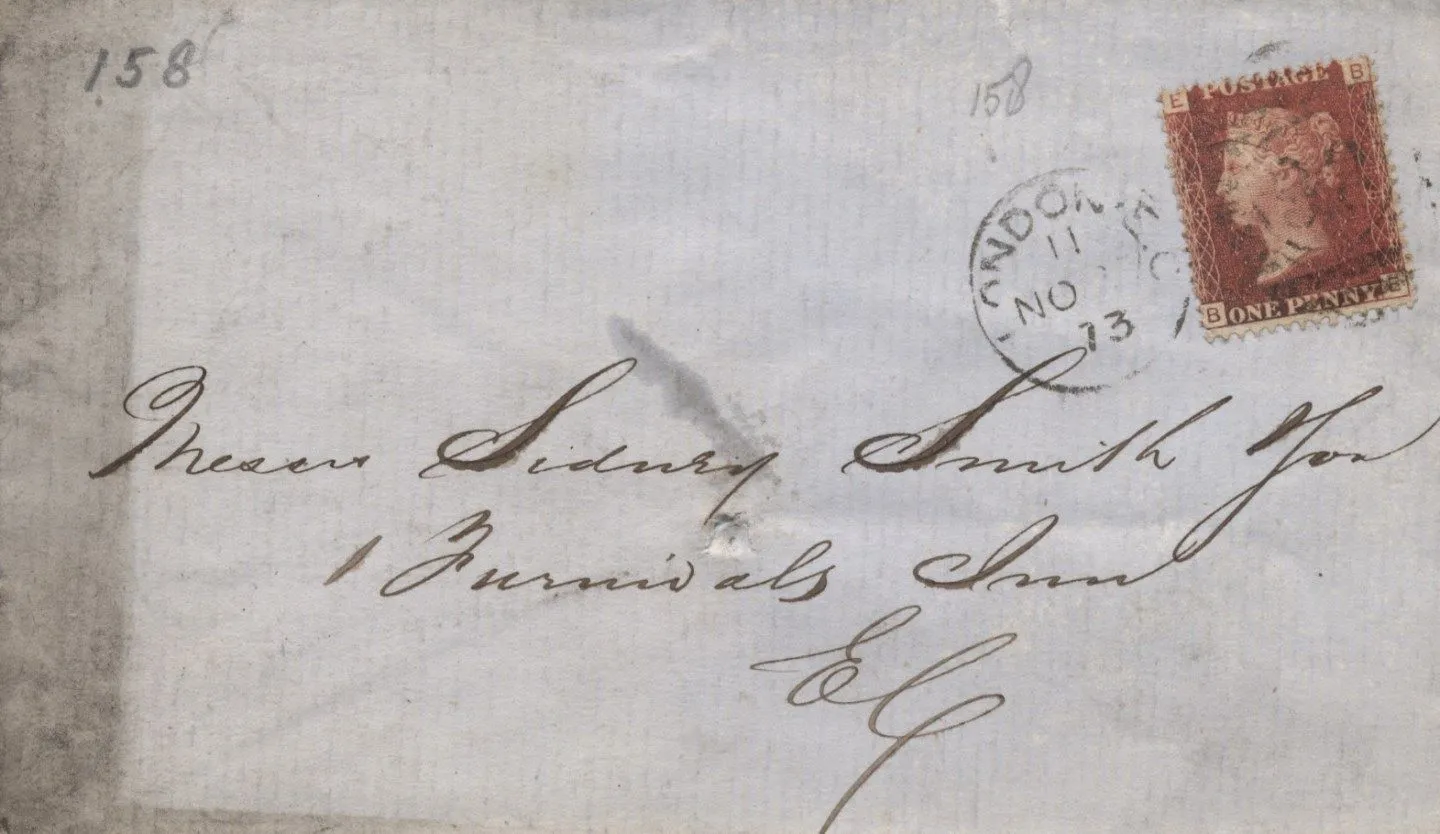 158
158
E POSTAGE B
B ONE PENNY E
LONDON E.C
11
NO
73
Messrs Sidney Smith &
1 Furnivals Inn
EC